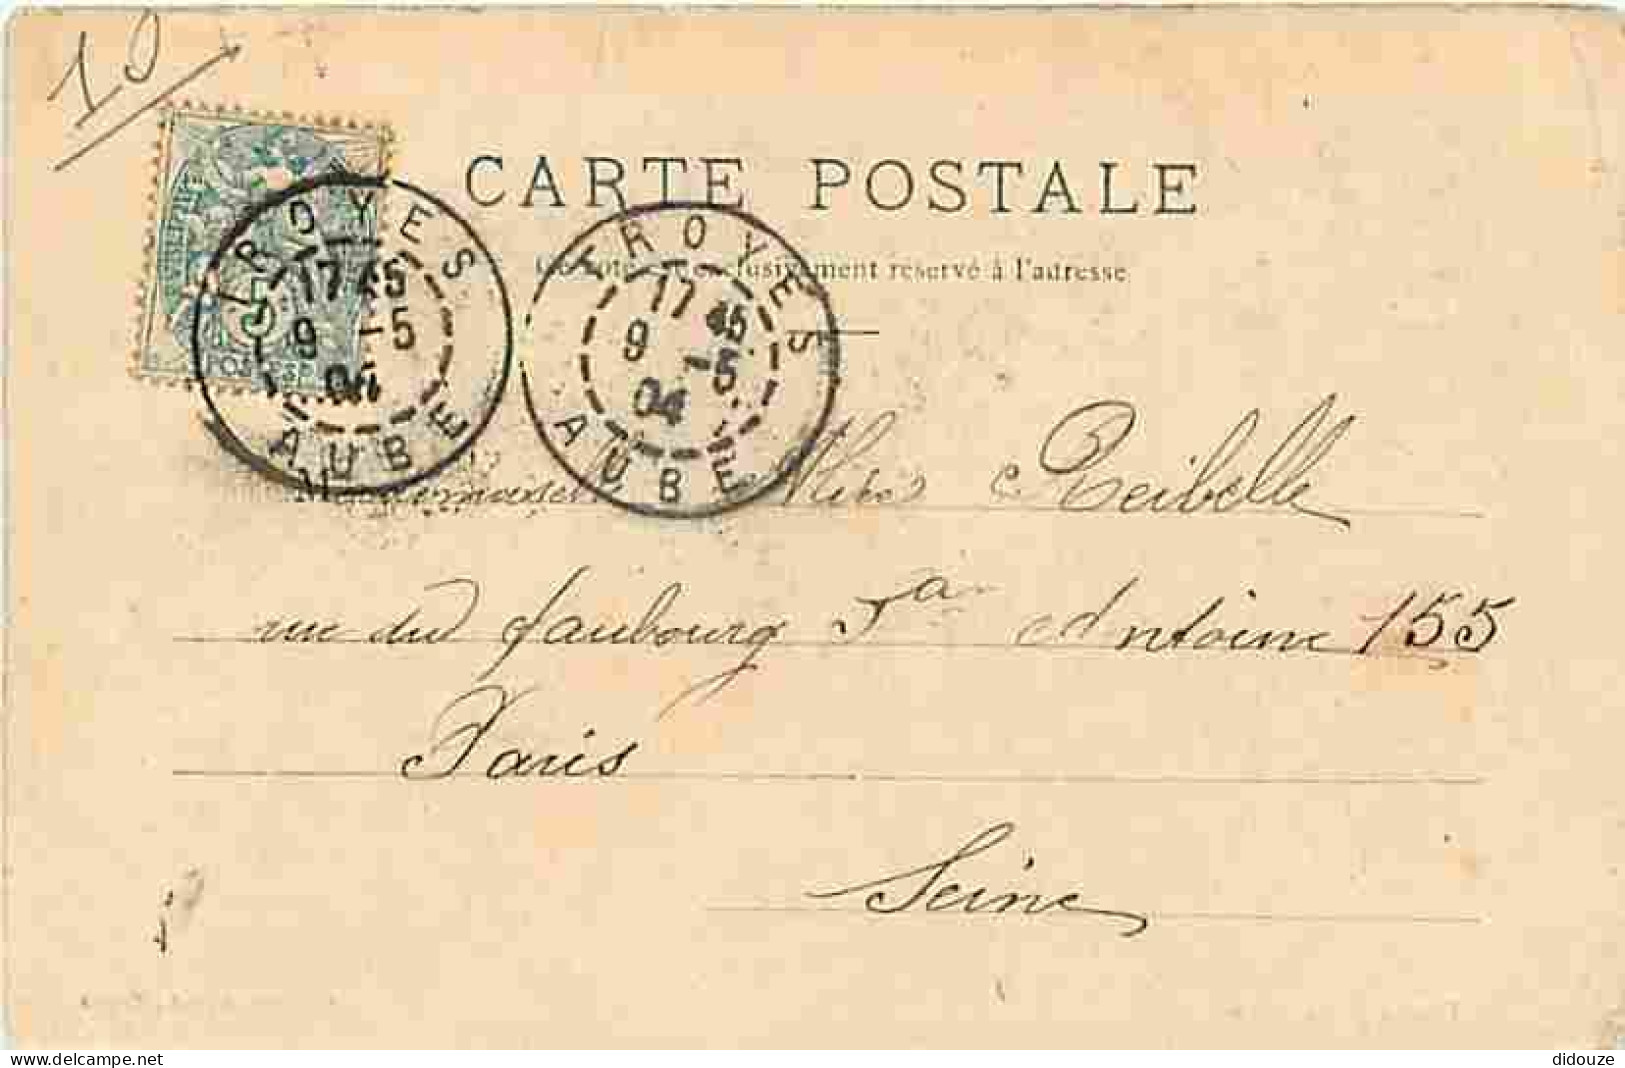 10
CARTE POSTALE
exclusivement réservé à l'adresse
TROYES
17 45
9 -5
04
AUBE
TROYES
17 45
9 -5
04
AUBE
5
POSTES
Mademoiselle Reibelle
rue du faubourg Antoine 155
Paris
Seine
didouze